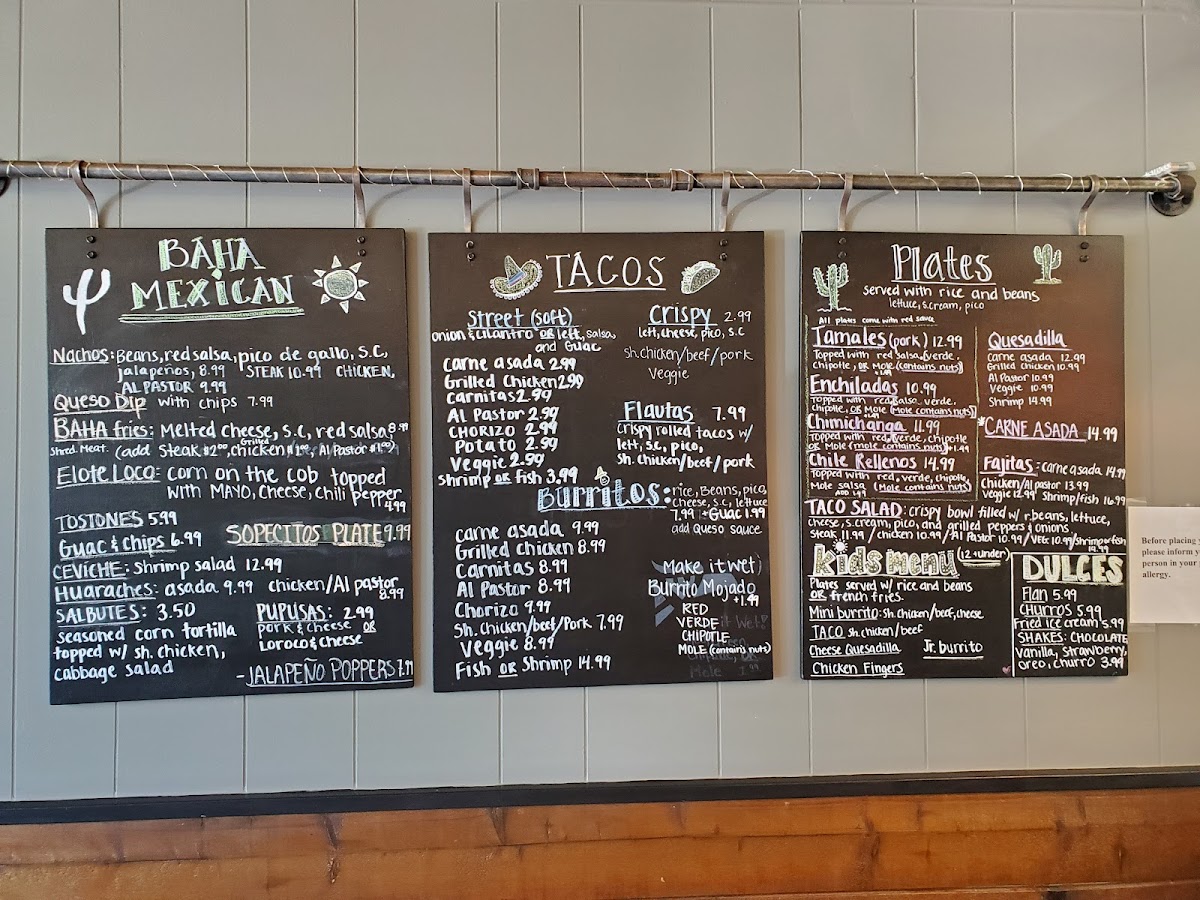 BAHA
MEXICAN
Nachos: Beans, red salsa, pico de gallo, S.C,
jalapeños, 8.99 STEAK 10.99 CHICKEN,
AL PASTOR 9.99
QUESO DIP with chips 7.99
BAHA fries: Melted cheese, S.C, red salsa 8.99
Shred. Meat. (add steak $2.00, Grilled chicken $1.00, Al Pastor $1.00)
Elote Loco: corn on the cob topped
with MAYO, cheese, chili pepper
4.99
TOSTONES 5.99
SOPECITOS PLATE 9.99
Guac & Chips 6.99
CEVICHE: Shrimp salad 12.99
Huaraches: asada 9.99 chicken/Al pastor
8.99
SALBUTES: 3.50
seasoned corn tortilla
topped w/ sh. chicken,
cabbage salad
PUPUSAS: 2.99
pork & cheese OR
Loroco & cheese
-JALAPEÑO POPPERS 7.99
TACOS
Street (soft)
onion & cilantro OR lett, salsa,
and Guac
carne asada 2.99
Grilled Chicken 2.99
carnitas 2.99
Al Pastor 2.99
CHORIZO 2.99
Potato 2.99
Veggie 2.99
Shrimp OR Fish 3.99
Crispy 2.99
lett, cheese, pico, s.c
sh. chicken/beef/pork
Veggie
Flautas 7.99
crispy rolled tacos w/
lett, s.c, pico,
sh. chicken/beef/pork
Burritos: rice, Beans, pico,
cheese, s.c, lettuce
7.99 +Guac 1.99
add Queso sauce
carne asada 9.99
Grilled Chicken 8.99
Carnitas 8.99
Al Pastor 8.99
Chorizo 9.99
Sh. Chicken/Beef/Pork 7.99
Veggie 8.99
Fish OR Shrimp 14.99
Make it wet)
Burrito Mojado
+1.99
RED
VERDE
CHIPOTLE
MOLE (contains nuts)
Plates
served with rice and beans
lettuce, s.cream, pico
All plates come with red sauce
Tamales (pork) 12.99
Topped with red salsa, verde,
Chipotle, OR Mole (contains nuts)
+1.99
Enchiladas 10.99
Topped with red salsa, verde,
chipotle, OR Mole (Mole contains nuts)
Chimichanga 11.99
Topped with red, verde, chipotle
OR Mole (mole contains nuts) +1.99
Chile Rellenos 14.99
Topped with red, verde, chipotle,
Mole salsa (Mole contains nuts)
ADD 1.99
Quesadilla
carne asada 12.99
Grilled chicken 10.99
Al Pastor 10.99
Veggie 10.99
Shrimp 14.99
*CARNE ASADA 14.99
Fajitas: carne asada 14.99
Chicken/Al pastor 13.99
veggie 12.99 Shrimp/fish 16.99
TACO SALAD: crispy bowl filled w/ r.beans, lettuce,
cheese, s.cream, pico, and grilled peppers & onions
steak 11.99 / chicken 10.99 / Al Pastor 10.99 / VEGG 10.99 / shrimp or fish
14.99
kids menu (12 + under)
Plates served w/ rice and beans
OR french fries.
Mini burrito: Sh. Chicken/beef, cheese
TACO sh. chicken/beef
Cheese Quesadilla Jr. burrito
Chicken Fingers
DULCES
Flan 5.99
Churros 5.99
Fried ice cream 5.99
SHAKES: CHOCOLATE
Vanilla, strawberry,
oreo, churro 3.99
Before placing
please inform
person in your
allergy.